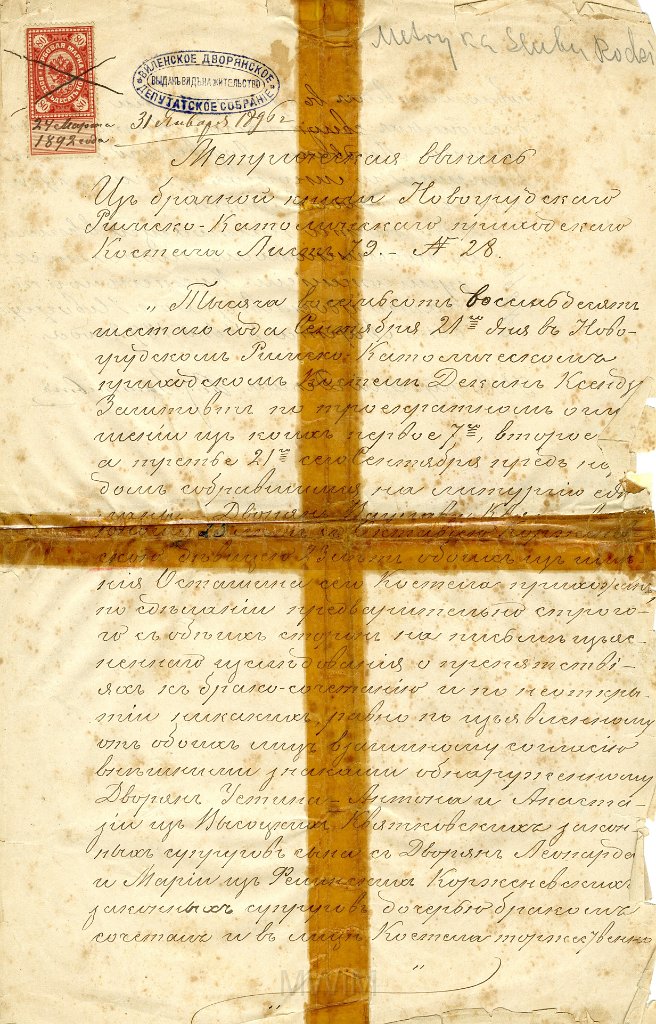 Metryka Slubu Rodzi
ВИЛЕНСКОЕ ДВОРЯНСКОЕ
ВЫДАНЪ ВИДЪ НА ЖИТЕЛЬСТВО
ДЕПУТАТСКОЕ СОБРАНІЕ
31 Января 1896 г
24 Марта
1892 года
Метрическая выпись
Изъ брачной книги Новогрудскаго
Римско-Католическаго приходскаго
Костела Листъ 79. № 28.
„Тысяча восемьсотъ восемьдесятъ
шестаго года Сентября 21го дня въ Ново-
грудскомъ Римско-Католическомъ
приходскомъ Костелѣ Деканъ Ксендзъ
по троекратномъ огла
шеніи изъ коихъ первое 7го, второе
а третье 21го сего Сентября предъ на
домъ собравшимся на литургію
Дворянъ
23 лѣтъ обоихъ изъ имѣ
нія Осташина сего Костела прихожанъ
по сдѣланіи предварительно строго-
го съ обѣихъ сторонъ на письмѣ изъяс-
неннаго изслѣдованія о препятстві-
яхъ къ брако-сочетанію и по неоткры-
тіи никакихъ, равно по изъявленному
отъ обоихъ лицъ взаимному согласію
внѣшними знаками обнаруженному
Дворянъ Устина-Антона и Анаста-
зіи изъ Высоцкихъ Квятковскихъ закон-
ныхъ супруговъ сына съ Дворянъ Леонарда
и Маріи изъ Корженевскихъ
законныхъ супруговъ дочерью бракомъ
сочеталъ и въ лицѣ Костела торжественно
MWM